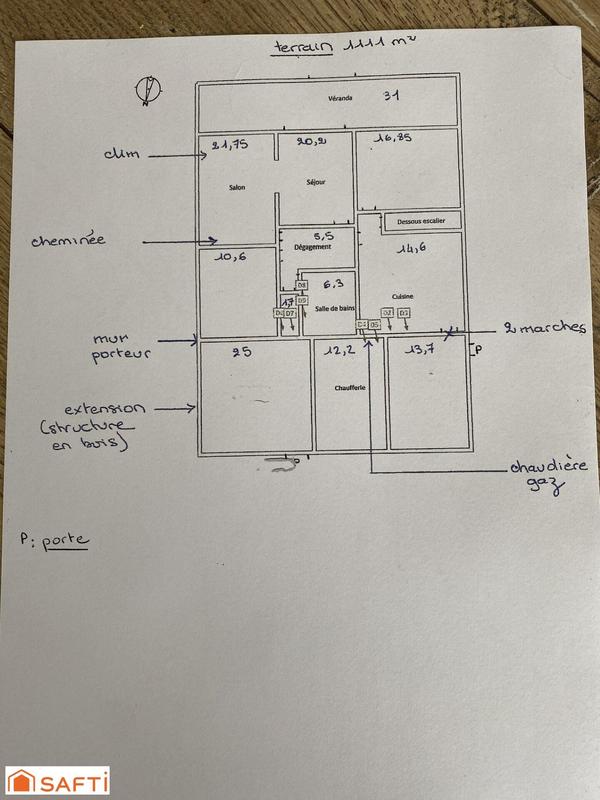 terrain 1111 m²
N
Véranda 31
21,75
20,2
16,85
clim
Salon
Séjour
Dessous escalier
cheminée
5,5
Dégagement
14,6
10,6
6,3
Cuisine
1,7
Salle de bains
2 marches
mur
porteur
25
12,2
13,7
P
Chaufferie
extension
(structure
en bois)
chaudière
gaz
P: porte
SAFTI